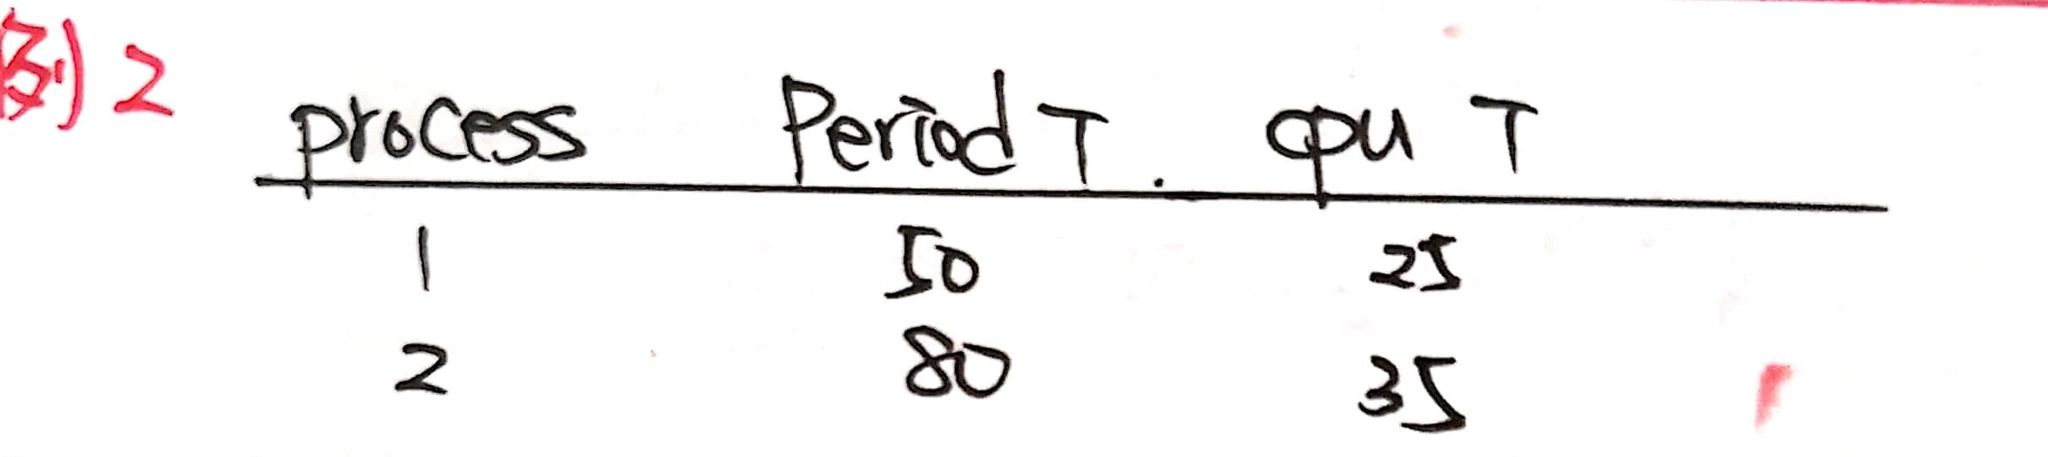 例2 process Period T. cpu T
1 50 25
2 80 35